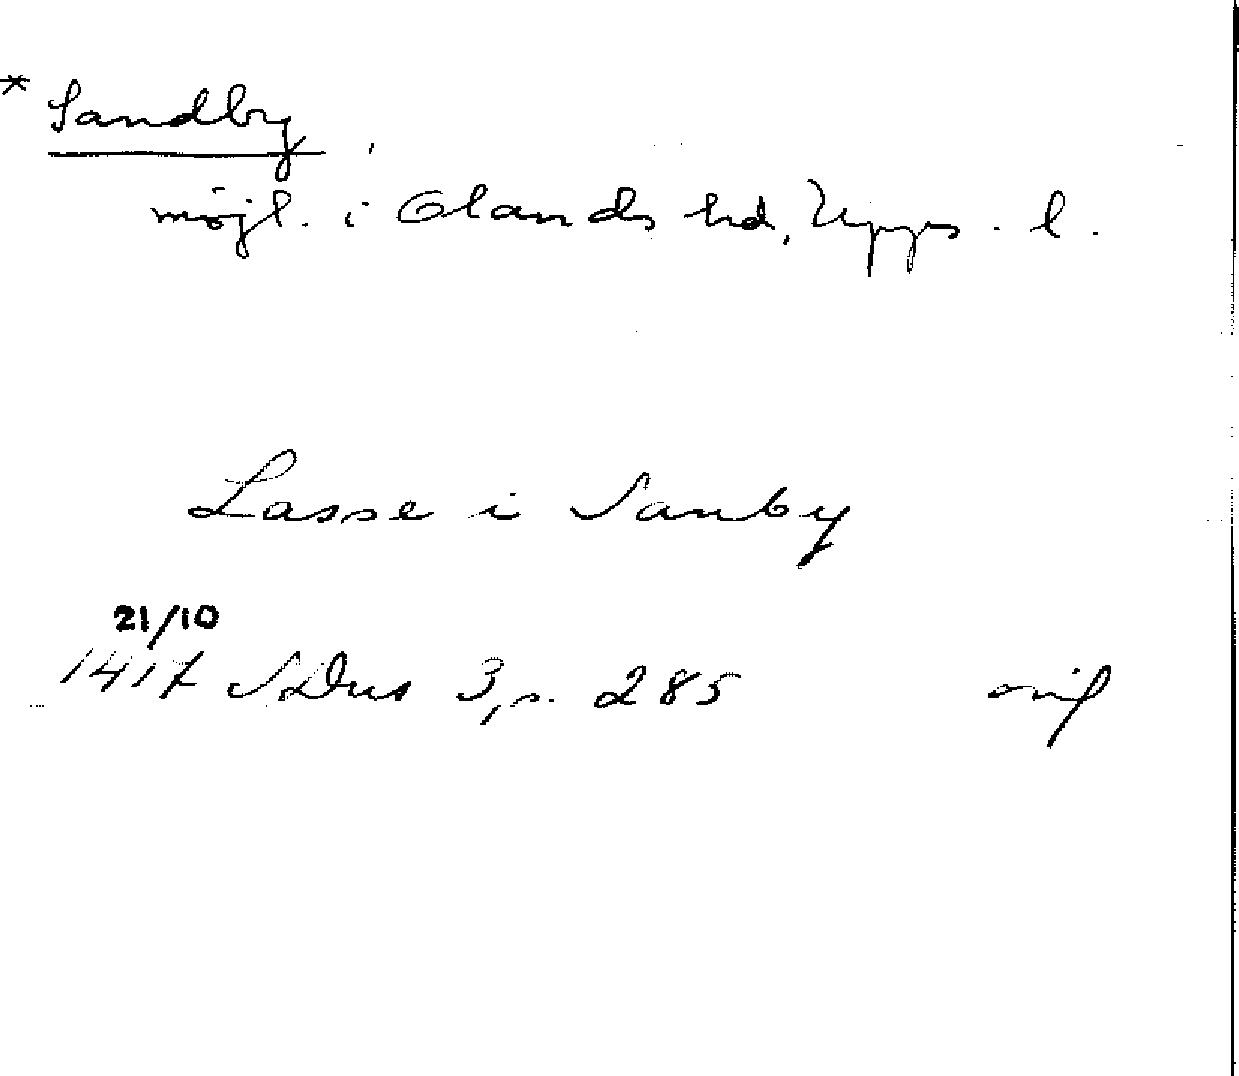 * Sandby
möjl. i Olands hd, Upps. l.
Lasse i Sanby
21/10
1417 SDns 3, s. 285 orig